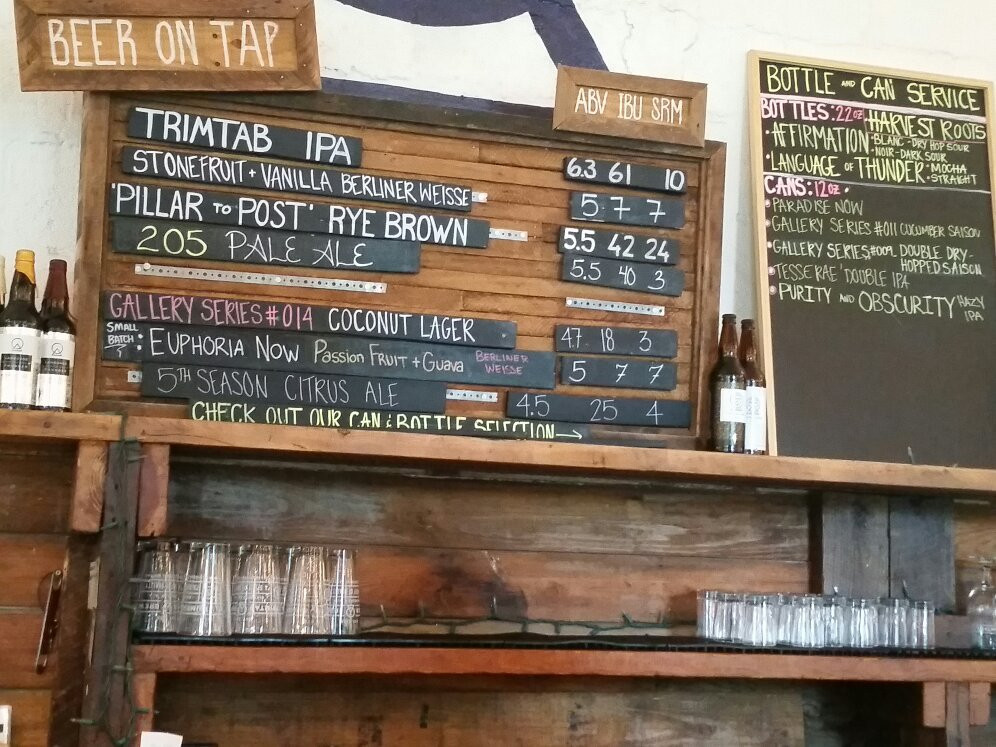 BEER ON TAP
ABV IBU SRM
TRIMTAB IPA 6.3 61 10
STONEFRUIT + VANILLA BERLINER WEISSE 5 7 7
'PILLAR TO POST' RYE BROWN 5.5 42 24
205 PALE ALE 5.5 40 3
GALLERY SERIES #014 COCONUT LAGER 4.7 18 3
SMALL BATCH: EUPHORIA NOW PASSION FRUIT + GUAVA BERLINER WEISSE 5 7 7
5TH SEASON CITRUS ALE 4.5 25 4
CHECK OUT OUR CAN & BOTTLE SELECTION →
BOTTLE AND CAN SERVICE
BOTTLES: 22oz HARVEST ROOTS
• AFFIRMATION • BLANC - DRY HOP SOUR
• NOIR - DARK SOUR
• LANGUAGE OF THUNDER • MOCHA
• STRAIGHT
CANS: 12oz •
• PARADISE NOW
• GALLERY SERIES #011 CUCUMBER SAISON
• GALLERY SERIES #009 DOUBLE DRY-
HOPPED SAISON
• TESSERAE DOUBLE IPA
• PURITY AND OBSCURITY HAZY
IPA